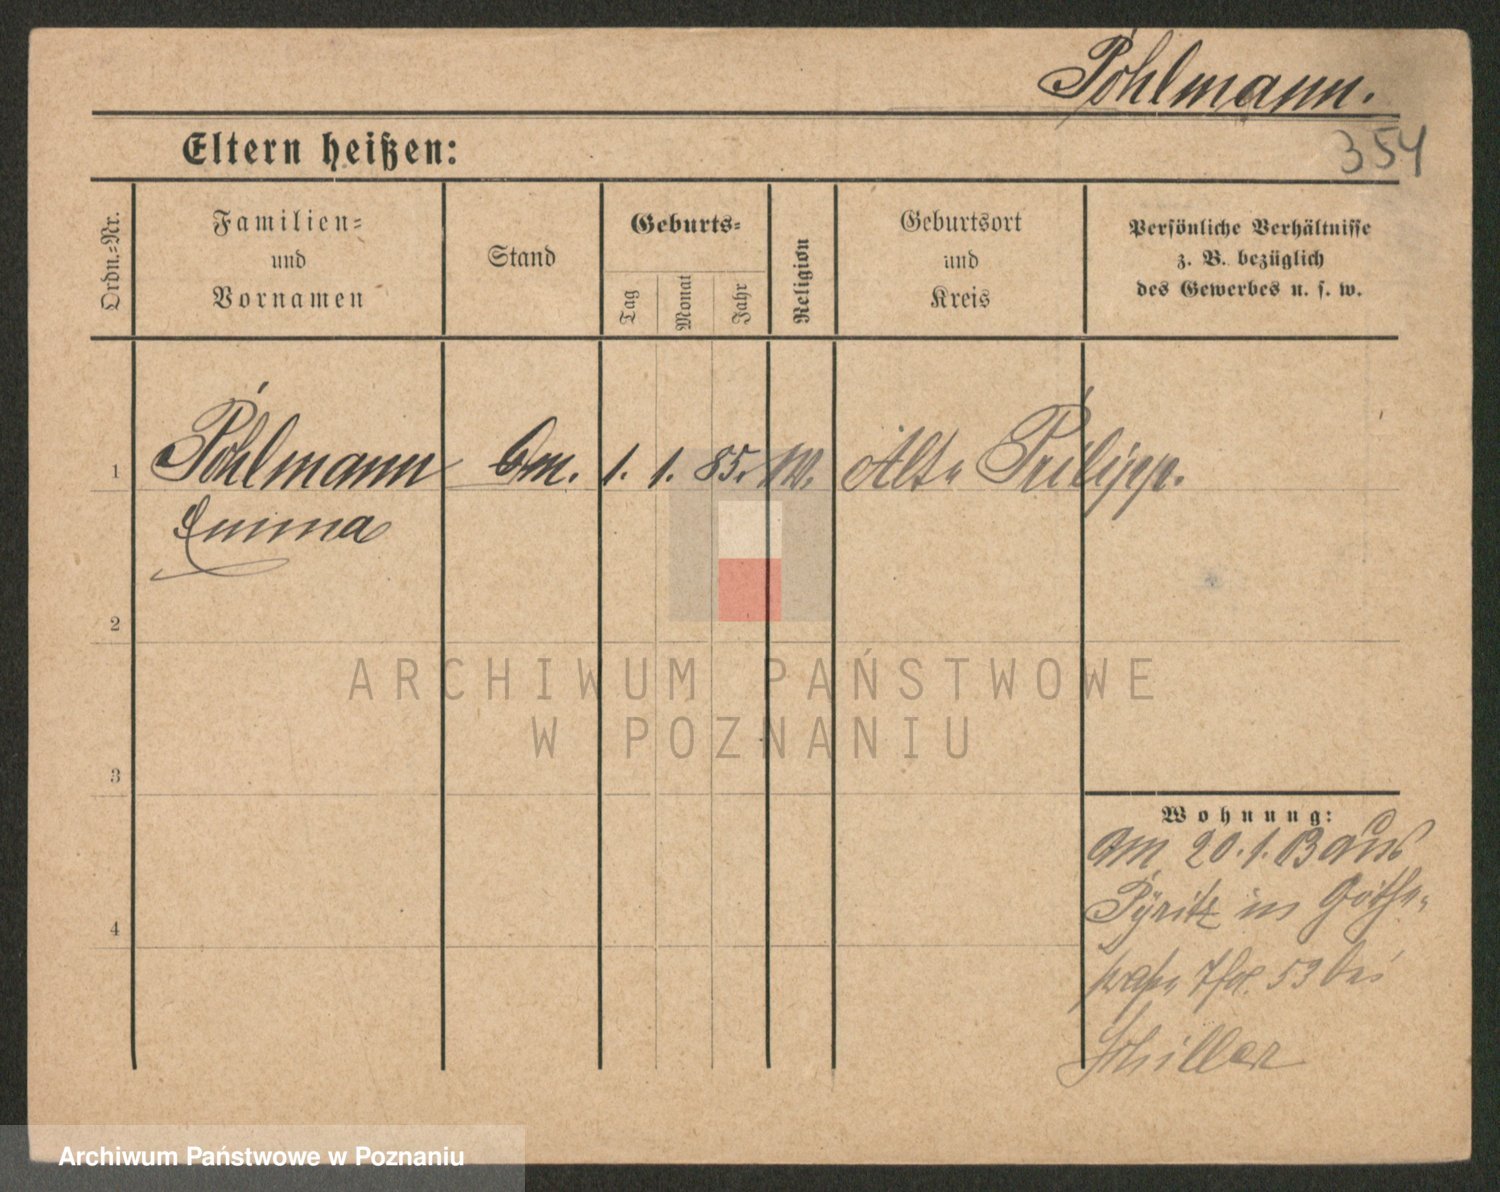 Pöhlmann.
354
Eltern heißen:
Ordn.-Nr.
Familien-
und
Vornamen
Stand
Geburts-
Tag
Monat
Jahr
Religion
Geburtsort
und
Kreis
Persönliche Verhältnisse
z. B. bezüglich
des Gewerbes u. s. w.
1
Pöhlmann
1. 1. 85.
Alt
Emma
2
3
4
Wohnung:
Am 20.1.13 aus
Pyritz in Göthe-
53 bei
Schiller
ARCHIWUM PAŃSTWOWE
W POZNANIU
Archiwum Państwowe w Poznaniu